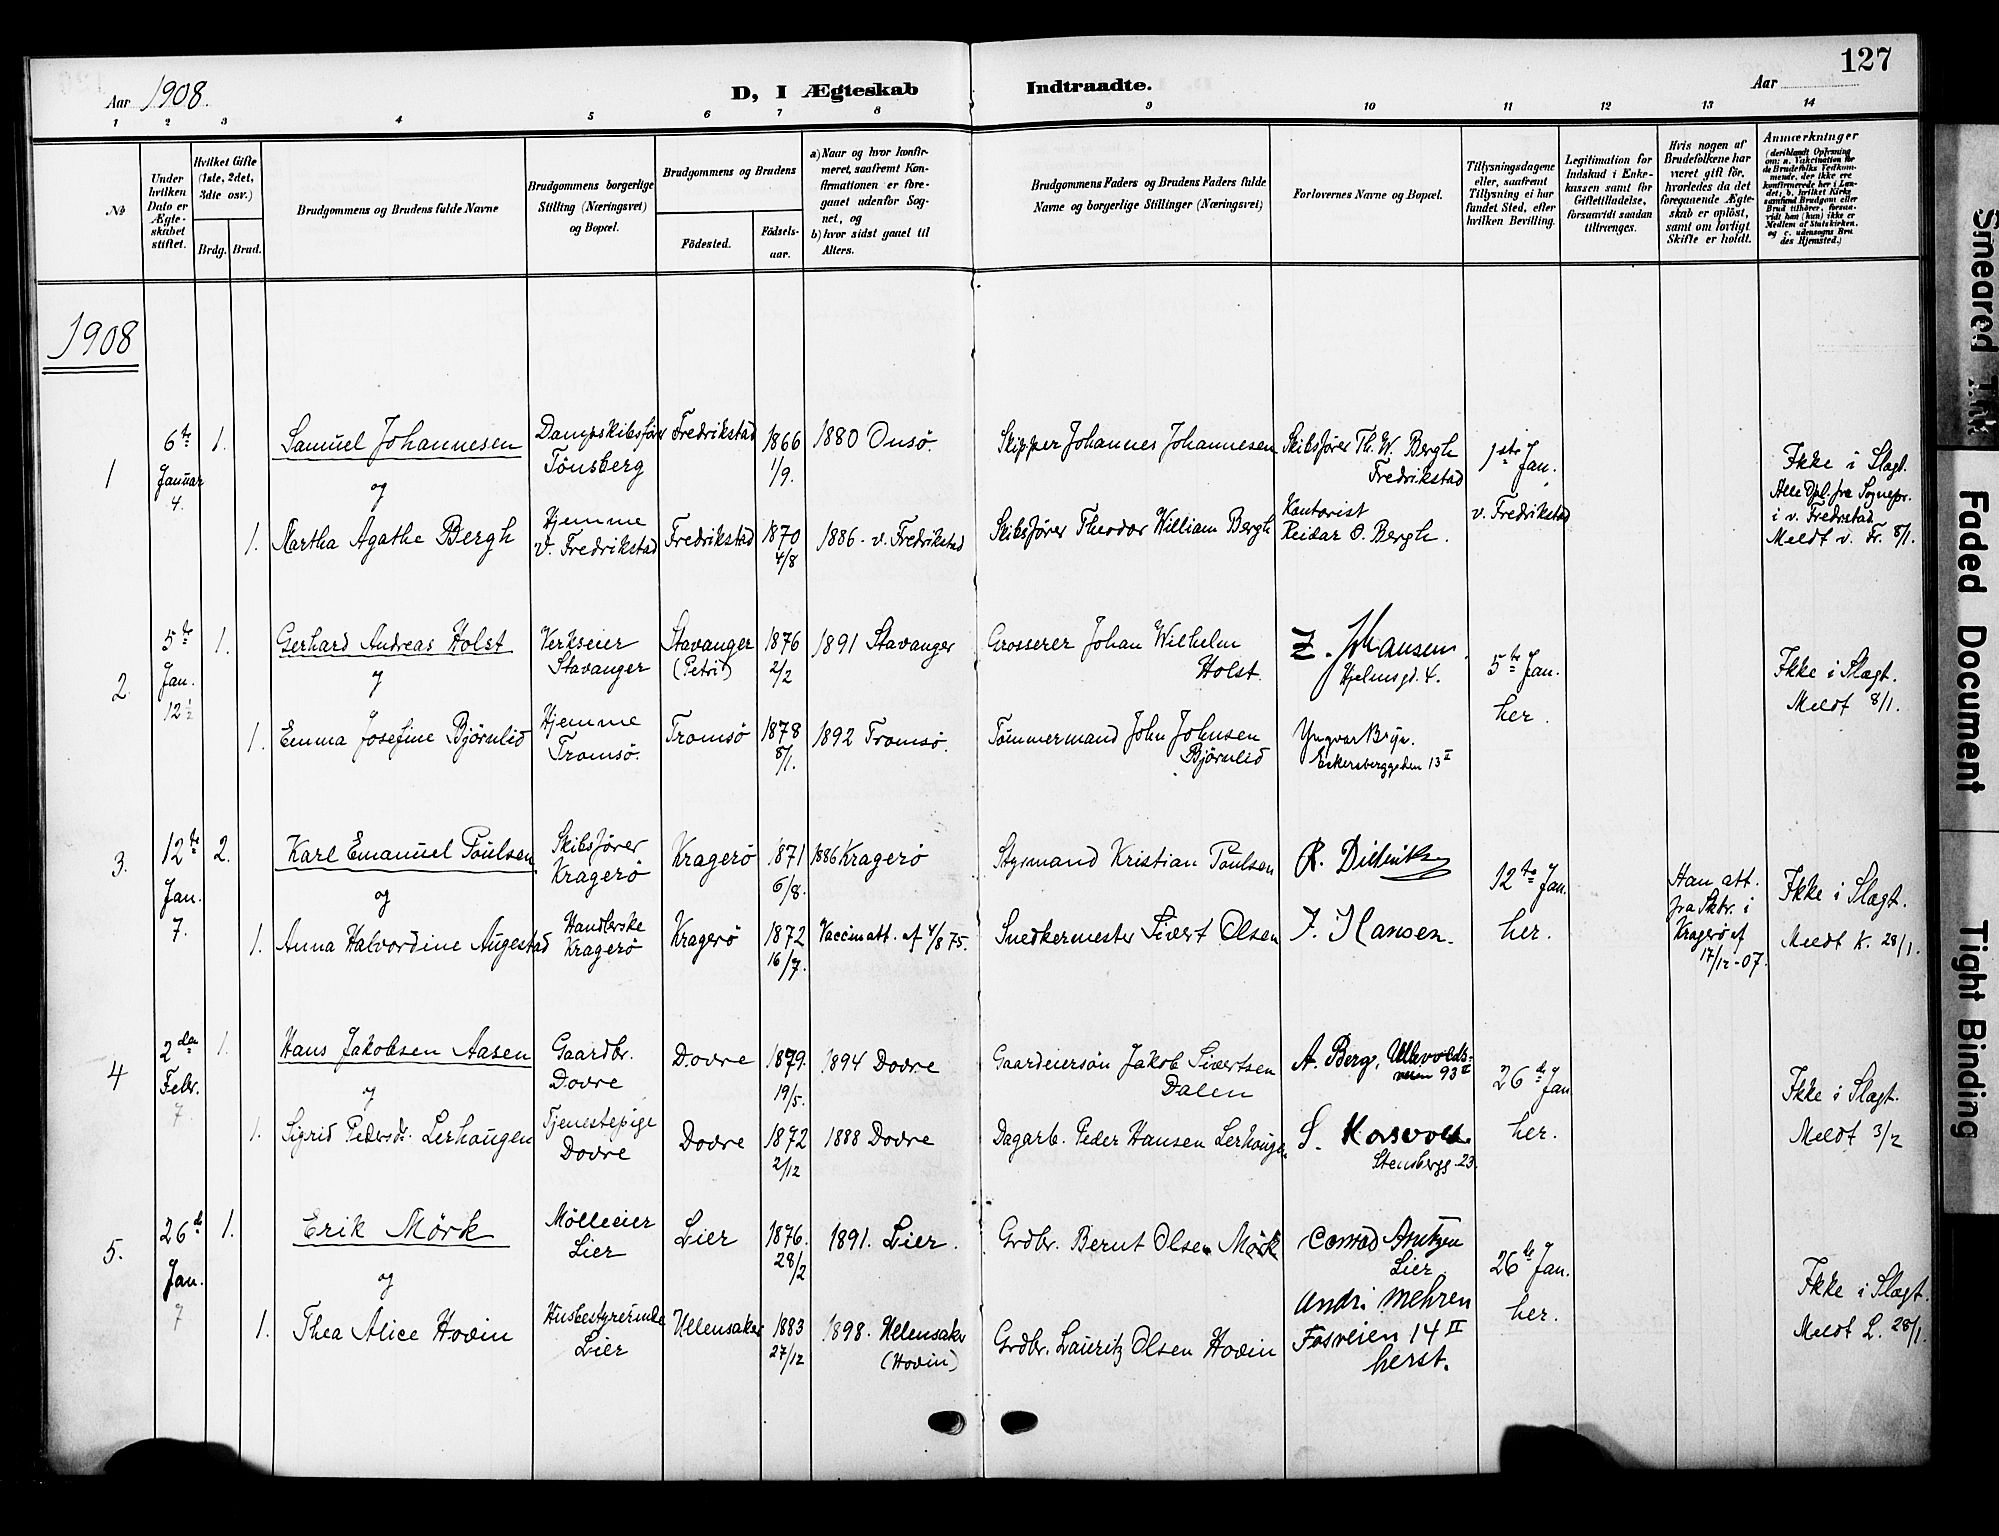 127
Aar 1908.
D, I Ægteskab Indtraadte.
Aar
1 2 3 4 5 6 7 8 9 10 11 12 13 14
№
Under hvilken Dato er Ægteskabet stiftet.
Hvilket Gifte (1ste, 2det, 3dte osv.)
Brdg. Brud.
Brudgommens og Brudens fulde Navne
Brudgommens borgerlige Stilling (Næringsvei) og Bopæl.
Brudgommens og Brudens
Fødested.
Fødselsaar.
a) Naar og hvor konfirmeret, saafremt Konfirmationen er foregaaet udenfor Sognet, og
b) hvor sidst gaaet til Alters.
Brudgommens Faders og Brudens Faders fulde Navne og borgerlige Stillinger (Næringsvei)
Forlovernes Navne og Bopæl.
Tillysningsdagene eller, saafremt Tillysning ei har fundet Sted, efter hvilken Bevilling.
Legitimation for Indskud i Enkekassen samt for Giftetilladelse, forsaavidt saadan tiltrænges.
Hvis nogen af Brudefolkene har været gift før, hvorledes da det foregaaende Ægteskab er opløst, samt om lovligt Skifte er holdt.
Anmærkninger
(deriblandt Oplysning om: a. Vakcination for de Brudefolks Vedkommende, der ikke ere konfirmerede her i Landet; b. hvilket Kirkesamfund Brudgom eller Brud tilhører, forsaavidt han (hun) ikke er Medlem af Statskirken, og c. udensogns Brudes Hjemsted.)
1908
1
6te Januar 4.
1.
Samuel Johannesen
Dampskibsfører Tønsberg
Fredrikstad
1866 1/9.
1880 Onsø.
Skipper Johannes Johannesen
Skibsfører Th. W. Bergh Fredrikstad
1ste Jan.
v. Fredrikstad
Ikke i Slagt.
Alle Opl. fra Sognepr. i v. Fredrstad
Meldt v. Fr. 8/1.
og
1. Martha Agathe Bergh
Hjemme v. Fredrikstad
Fredrikstad
1870 4/8
1886 - v. Fredrikstad
Skibsfører Theodor William Bergh
Kontorist Reidar O. Bergh.
2.
5te Jan. 12½
1.
Gerhard Andreas Holst
Verkseier Stavanger
Stavanger (Petri)
1876 2/2
1891 Stavanger
Grosserer Johan Wilhelm Holst.
Z. Johansen. Hjelmsgd. 4.
5te Jan. her.
Ikke i Slagt.
Meldt 8/1.
og
1. Emma Josefine Bjørnlid
Hjemme Tromsø.
Tromsø
1878 8/1.
1892 Tromsø.
Tømmermand John Johnsen Bjørnlid
Yngvar Bryn. Eckersberggaden 13 II
3.
12te Jan. 7.
2.
Karl Emanuel Poulsen
Skibsfører Kragerø
Kragerø
1871 6/8.
1886 Kragerø
Styrmand Kristian Poulsen
12te Jan. her.
Han att. fra Skbr. i Kragerø af 17/12-07.
Ikke i Slagt.
Meldt K. 28/1.
og
1. Anna Halvordine Augestad
Handlerske Kragerø
Kragerø
1872 16/7.
Vaccinatt. af 4/8 75.
Snedkermester Sivert Olsen
J. Hansen.
4
2den Febr. 7
1.
Hans Jakobsen Aasen
Gaardbr. Dovre
Dovre
1879. 19/5.
1894 Dovre
Gaardeiersøn Jakob Sivertsen Dalen
A. Berg, Ullevoldsveien 93 II
26de Jan her.
Ikke i Slagt.
Meldt 3/2
og
1. Sigrid Pedersdr. Lerhaugen
Tjenestepige Dovre
Dovre
1872 2/12
1888 Dovre
Dagarb. Peder Hansen Lerhaugen
S. Korsvold. Stensbergg. 23.
5.
26de Jan. 7
1.
Erik Mörk
Mölleeier Lier
Lier
1876. 28/2
1891. Lier.
Grdbr. Bernt Olsen Mørk
Conrad Arntzen Lier
26de Jan. her.
Ikke i Slagt.
Meldt L. 28/1.
og
1. Thea Alice Hovin
Husbestyrerinde Lier
Ullensaker
1883 27/12
1898. Ullensaker (Hovin)
Grdbr. Lauritz Olsen Hovin
Andr. Mehren Fosveien 14 II herst.
Smeared Ink
Faded Document
Tight Binding